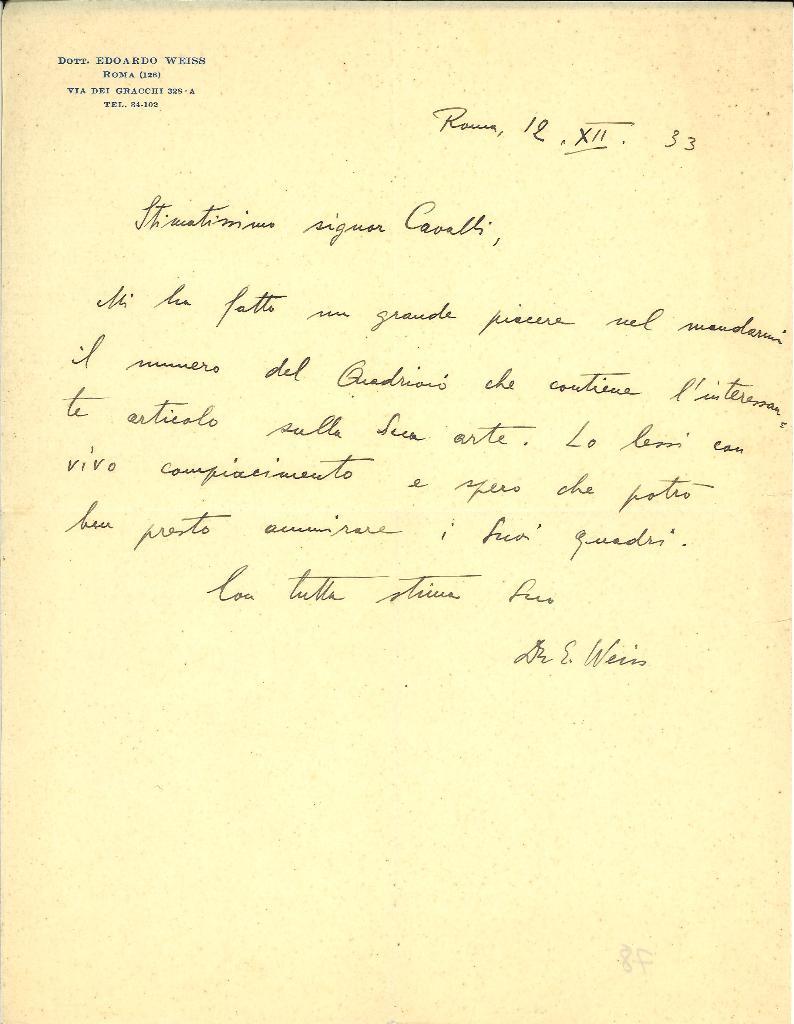 DOTT. EDOARDO WEISS
ROMA (126)
VIA DEI GRACCHI 328-A
TEL. 34-102
Roma, 12. XII. 33
Stimatissimo signor Cavalli,
Mi ha fatto un grande piacere nel mandarmi
il numero del Quadrivio che contiene l'interessan=
te articolo sulla Sua arte. Lo lessi con
vivo compiacimento e spero che potrò
ben presto ammirare i Suoi quadri.
Con tutta stima Suo
Dr E. Weiss